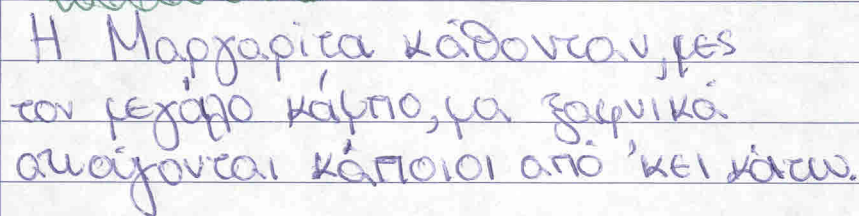 Η Μαργαρίτα κάθονταν, μες
τον μεγάλο κάμπο, μα ξαφνικά
ακούγονται κάποιοι από 'κει κάτω.